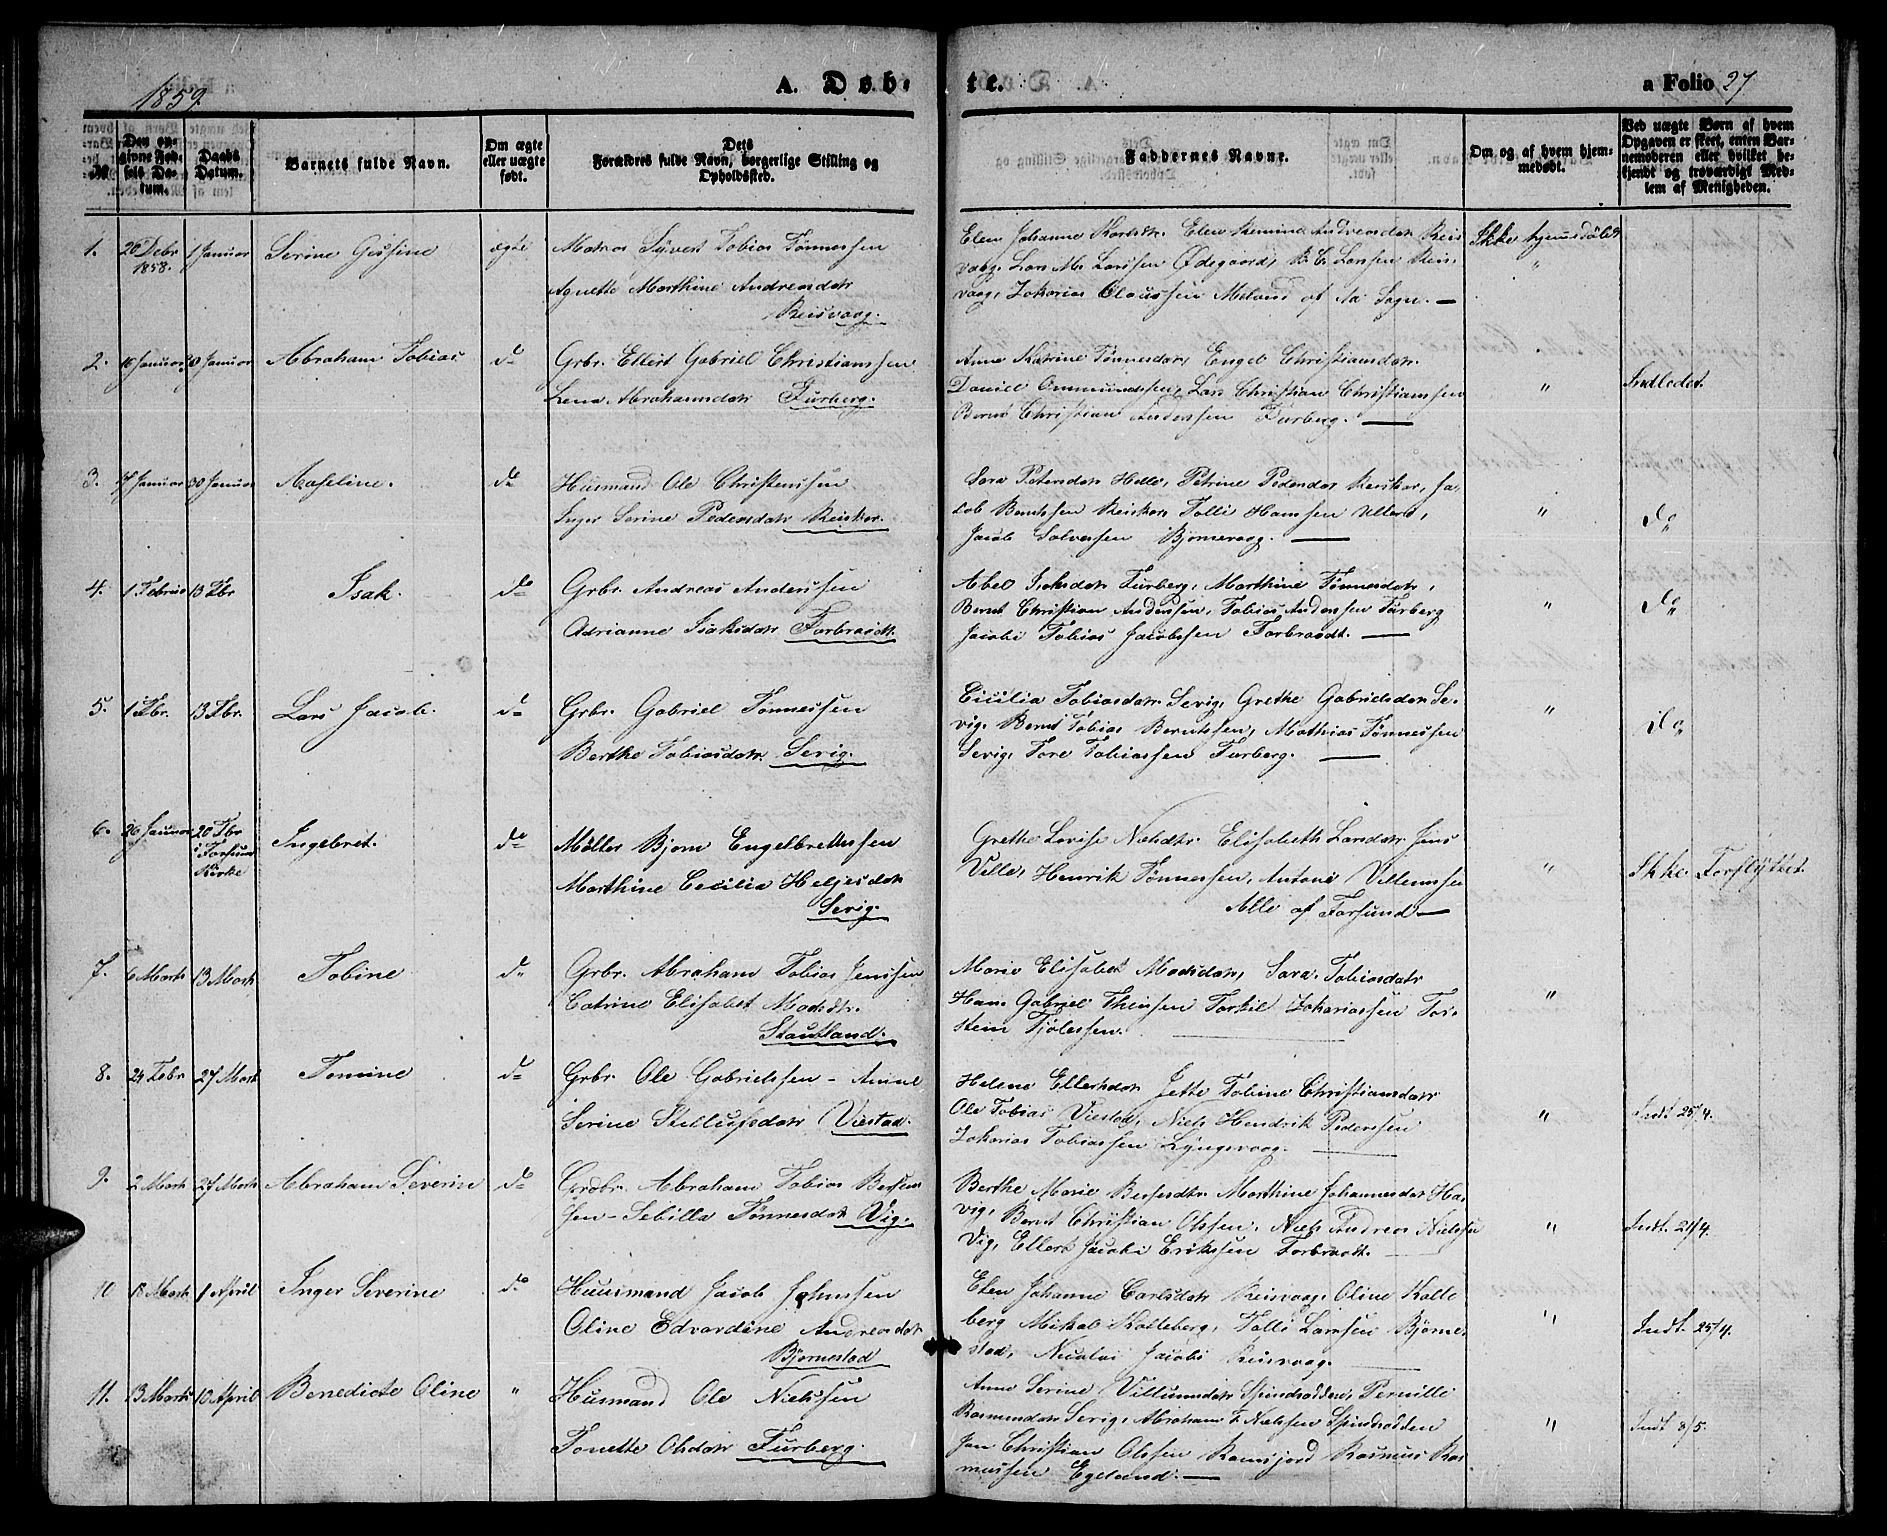 1859.
A. Döb-
te.
a Folio 27
№
Den op-
givne Fød-
sels Da-
tum.
Daabs
Datum.
Barnets fulde Navn.
Om ægte
eller uægte
født.
Dets
Forældres fulde Navn, borgerlige Stilling og
Opholdssted.
Faddernes Navne.
Om og af hvem hjem-
medøbt.
Ved uægte Børn af hvem
Opgaven er skeet, enten Bar-
nemoderen eller hvilket be-
kjendt og troværdigt Med-
lem af Menigheden.
1. 26 Debr 1858. 1 Januar Serine Gusine ægte Matros Syvert Tobias Tønnessen
Agnette Marthine Andreasdatr
Reisvaag.
Elen Johanne Karlsdtr. Elen Andreasdatr Reis
vaag, Lars Ms Larssen Ødegaard, B. C. Larsen Reis,
vaag, Zakarias Claussen Meland af Aa Sogn. —
Ikke hjemmedøbt
2. 16 Januar 30 Januar Abraham Tobias do Grbr. Ellert Gabriel Christianssen
Lena Abrahamsdatr Furberg.
Anne Katrine Tønnesdatr, Engel Christiansdatr.
Daniel Ommundssen, Lars Christian Christianssen
Bernt Christian Anderssen Furberg. —
" Indledet.
3. 17 Januar 30 Januar Aaseline. do Husmand Ole Christenssen
Inger Serine Pedersdatr Reisker.
Sara Petersdatr Helle, Petrine Pedersdatr Reisker, Ja,
kob Berntssen Reisker, Tolli Hanssen Ullerø,
Jacob Salvessen Bjørnevaag. —
" do
4. 1 Februar 13 Fbr Isak. do Grbr. Andreas Anderssen
Adrianne Isaksdatr Forbrasdt.
Abel Isaksdatr Furberg, Marthine Tønnesdatr,
Bernt Christian Anderssen, Tobias Anderssen Furberg
Jacobi Tobias Jacobssen Forbraadt. —
" do
5. 1 Fbr. 13 Fbr. Lars Jacob. do Grbr. Gabriel Tønnessen
Berthe Tobiasdatr. Sevig.
Cicilia Tobiasdatr. Sevig, Grethe Gabrielsdatr Se-
vig, Bernt Tobias Berntssen, Mathias Tønnessen
Sevig, Tore Tobiassen Furberg. —
" do
6. 26 Januar 20 Fbr
i Farsund
Kirke Ingebret. do Møller Bjørn Engelbrettssen
Marthine Cecilia Heljesdatr
Sevig.
Grethe Lovise Nielsdtr. Elisabeth Larsdatr. Jens
Ville, Henrik Tønnessen, Antoni Villumssen
Alle af Farsund —
" Ikke. Forflyttet.
7. 6 Marts 13 Marts Tobine do Grbr. Abraham Tobias Jenssen
Catrine Elisabet Madsdtr.
Stautland.
Marie Elisabet Madsdatr, Sara Tobiasdatr
Hans Gabriel Torkel Zakariassen Tor-
stein
"
8. 24 Febr 27 Marts Tomine do Grbr. Ole Gabrielssen – Anne
Serine Stellufsdatr Viestad.
Helene Ellertsdatr Jette Tobine Christiansdatr
Ole Tobias Viestad, Niels Hendrik Pederssen
Zakarias Tobiassen Lyngsvaag.
" Indt 25/4.
9. 2 Marts 27 Marts Abraham Severin do Grdbr. Abraham Tobias
sen – Sebilla Tønnesdatr Vig.
Berthe Marie Marthine Johannesdatr Ha,
vig, Bernt Christian Olssen, Niels Andreas Nielssen
Vig, Ellert Jacobi Erikssen Forbraadt.
" Indt. 25/4.
10 18 Marts 1 April Inger Severine do Huusmand Jacob Johnssen
Oline Edvardine Andreasdatr
Bjørnestad
Elen Johanne Carlsdatr Reisvaag, Oline Kalle
berg Mikal Kalleberg, Tolli Larssen Bjørne,
stad, Nicolai Jacobi Reisvaag.
" Indt. 25/4.
11. 13 Marts 10 April Benedicte Oline " Husmand Ole Nielssen
Tonette Olsdatr Furberg.
Anne Serine Villumsdatr Spindsodden, Pernille
Rasmusdatr Sevig, Abraham T. Nielssen Spindsodden
Jan Christian Olssen Ramsfjord Rasmus Ras
mussen Egeland. —
" Indt 8/5.